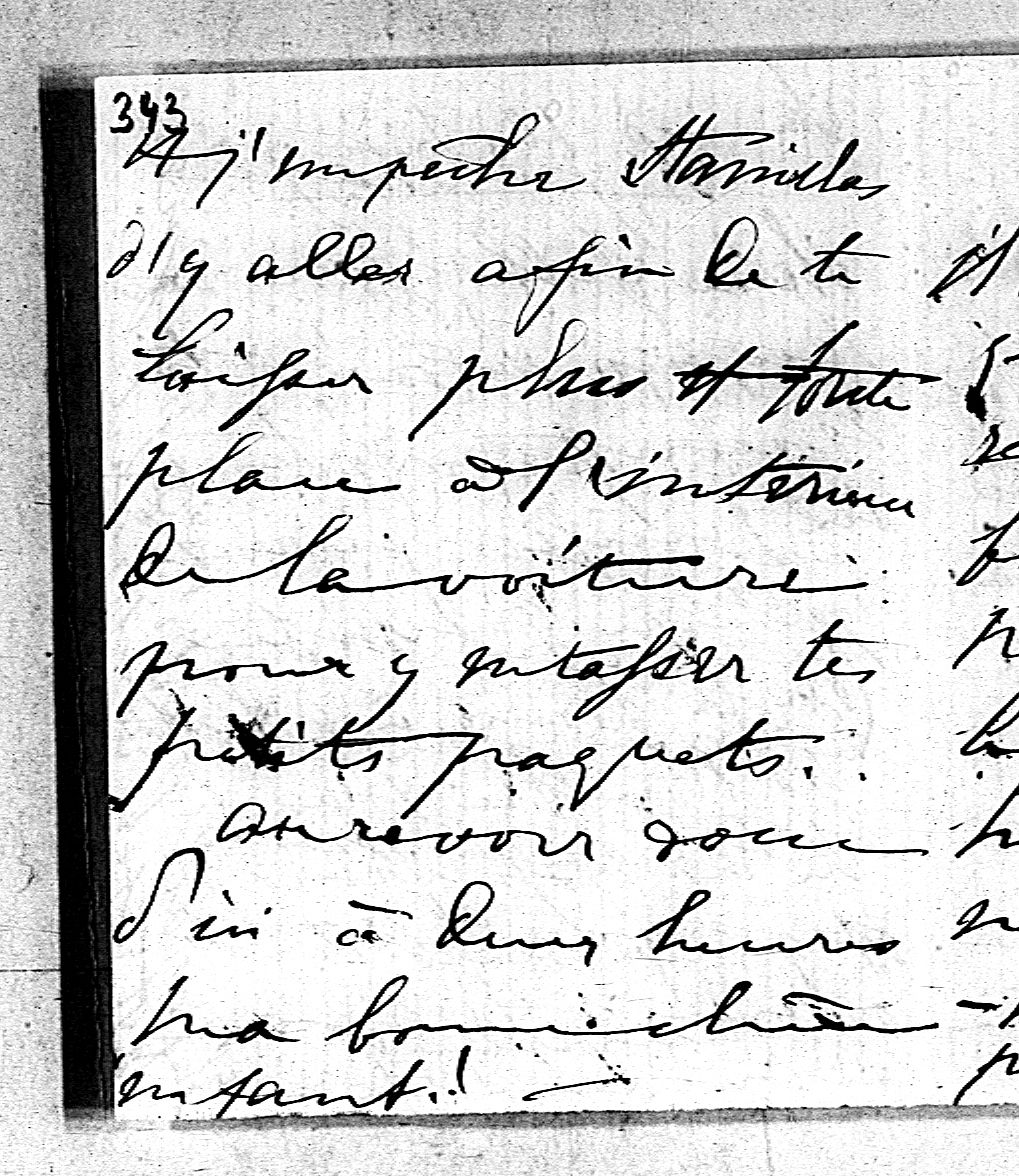 343
et j'empeche Stanislas
d'y aller afin de te
laisser plus et toute
place à l'intérieur
de la voiture
pour y entasser tes
petits paquets.
au revoir donc
d'ici à deux heures
ma bonne chère
enfant.! —